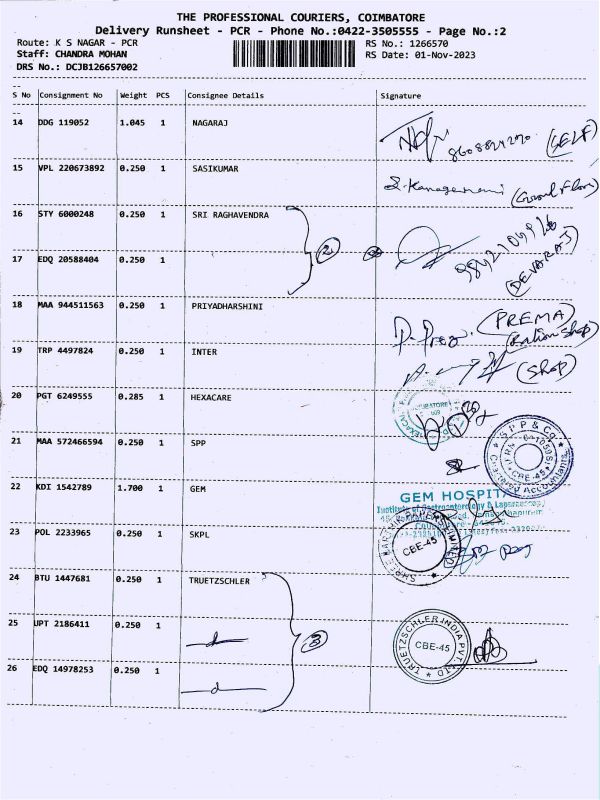 THE PROFESSIONAL COURIERS, COIMBATORE
Delivery Runsheet - PCR - Phone No.:0422-3505555 - Page No.:2
Route: K S NAGAR - PCR
RS No.: 1266570
Staff: CHANDRA MOHAN
RS Date: 01-Nov-2023
DRS No.: DCJB126657002
S No Consignment No Weight PCS Consignee Details Signature
14 DDG 119052 1.045 1 NAGARAJ
(SELF)
15 VPL 220673892 0.250 1 SASIKUMAR
16 STY 6000248 0.250 1 SRI RAGHAVENDRA
2
17 EDQ 20588404 0.250 1
(DEVARAJ)
18 MAA 944511563 0.250 1 PRIYADHARSHINI
(PREMA)
(Ration shop)
19 TRP 4497824 0.250 1 INTER
(Shop)
20 PGT 6249555 0.285 1 HEXACARE
21 MAA 572466594 0.250 1 SPP
SPP & Co
CBE-45
Chartered Accountants
22 KDI 1542789 1.700 1 GEM
GEM HOSPITAL
23 POL 2233965 0.250 1 SKPL
CBE-45
24 BTU 1447681 0.250 1 TRUETZSCHLER
25 UPT 2186411 0.250 1
3
TRUETZSCHLER INDIA PVT. LTD
CBE-45
26 EDQ 14978253 0.250 1